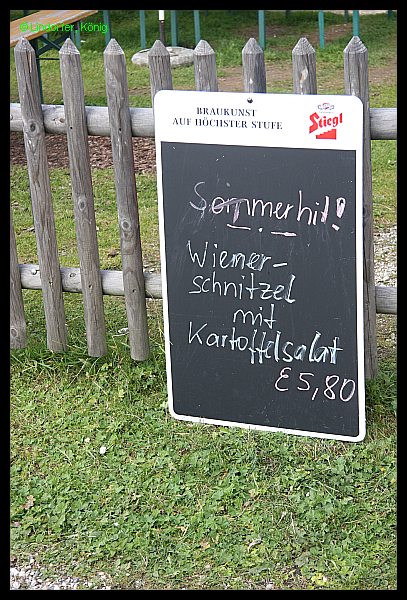 ©Lindorfer_König
BRAUKUNST
AUF HÖCHSTER STUFE
Stiegl
Sommerhit!
Wiener-
schnitzel
mit
Kartoffelsalat
€5,80